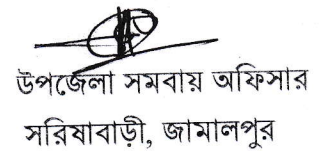 উপজেলা সমবায় অফিসার
সরিষাবাড়ী, জামালপুর